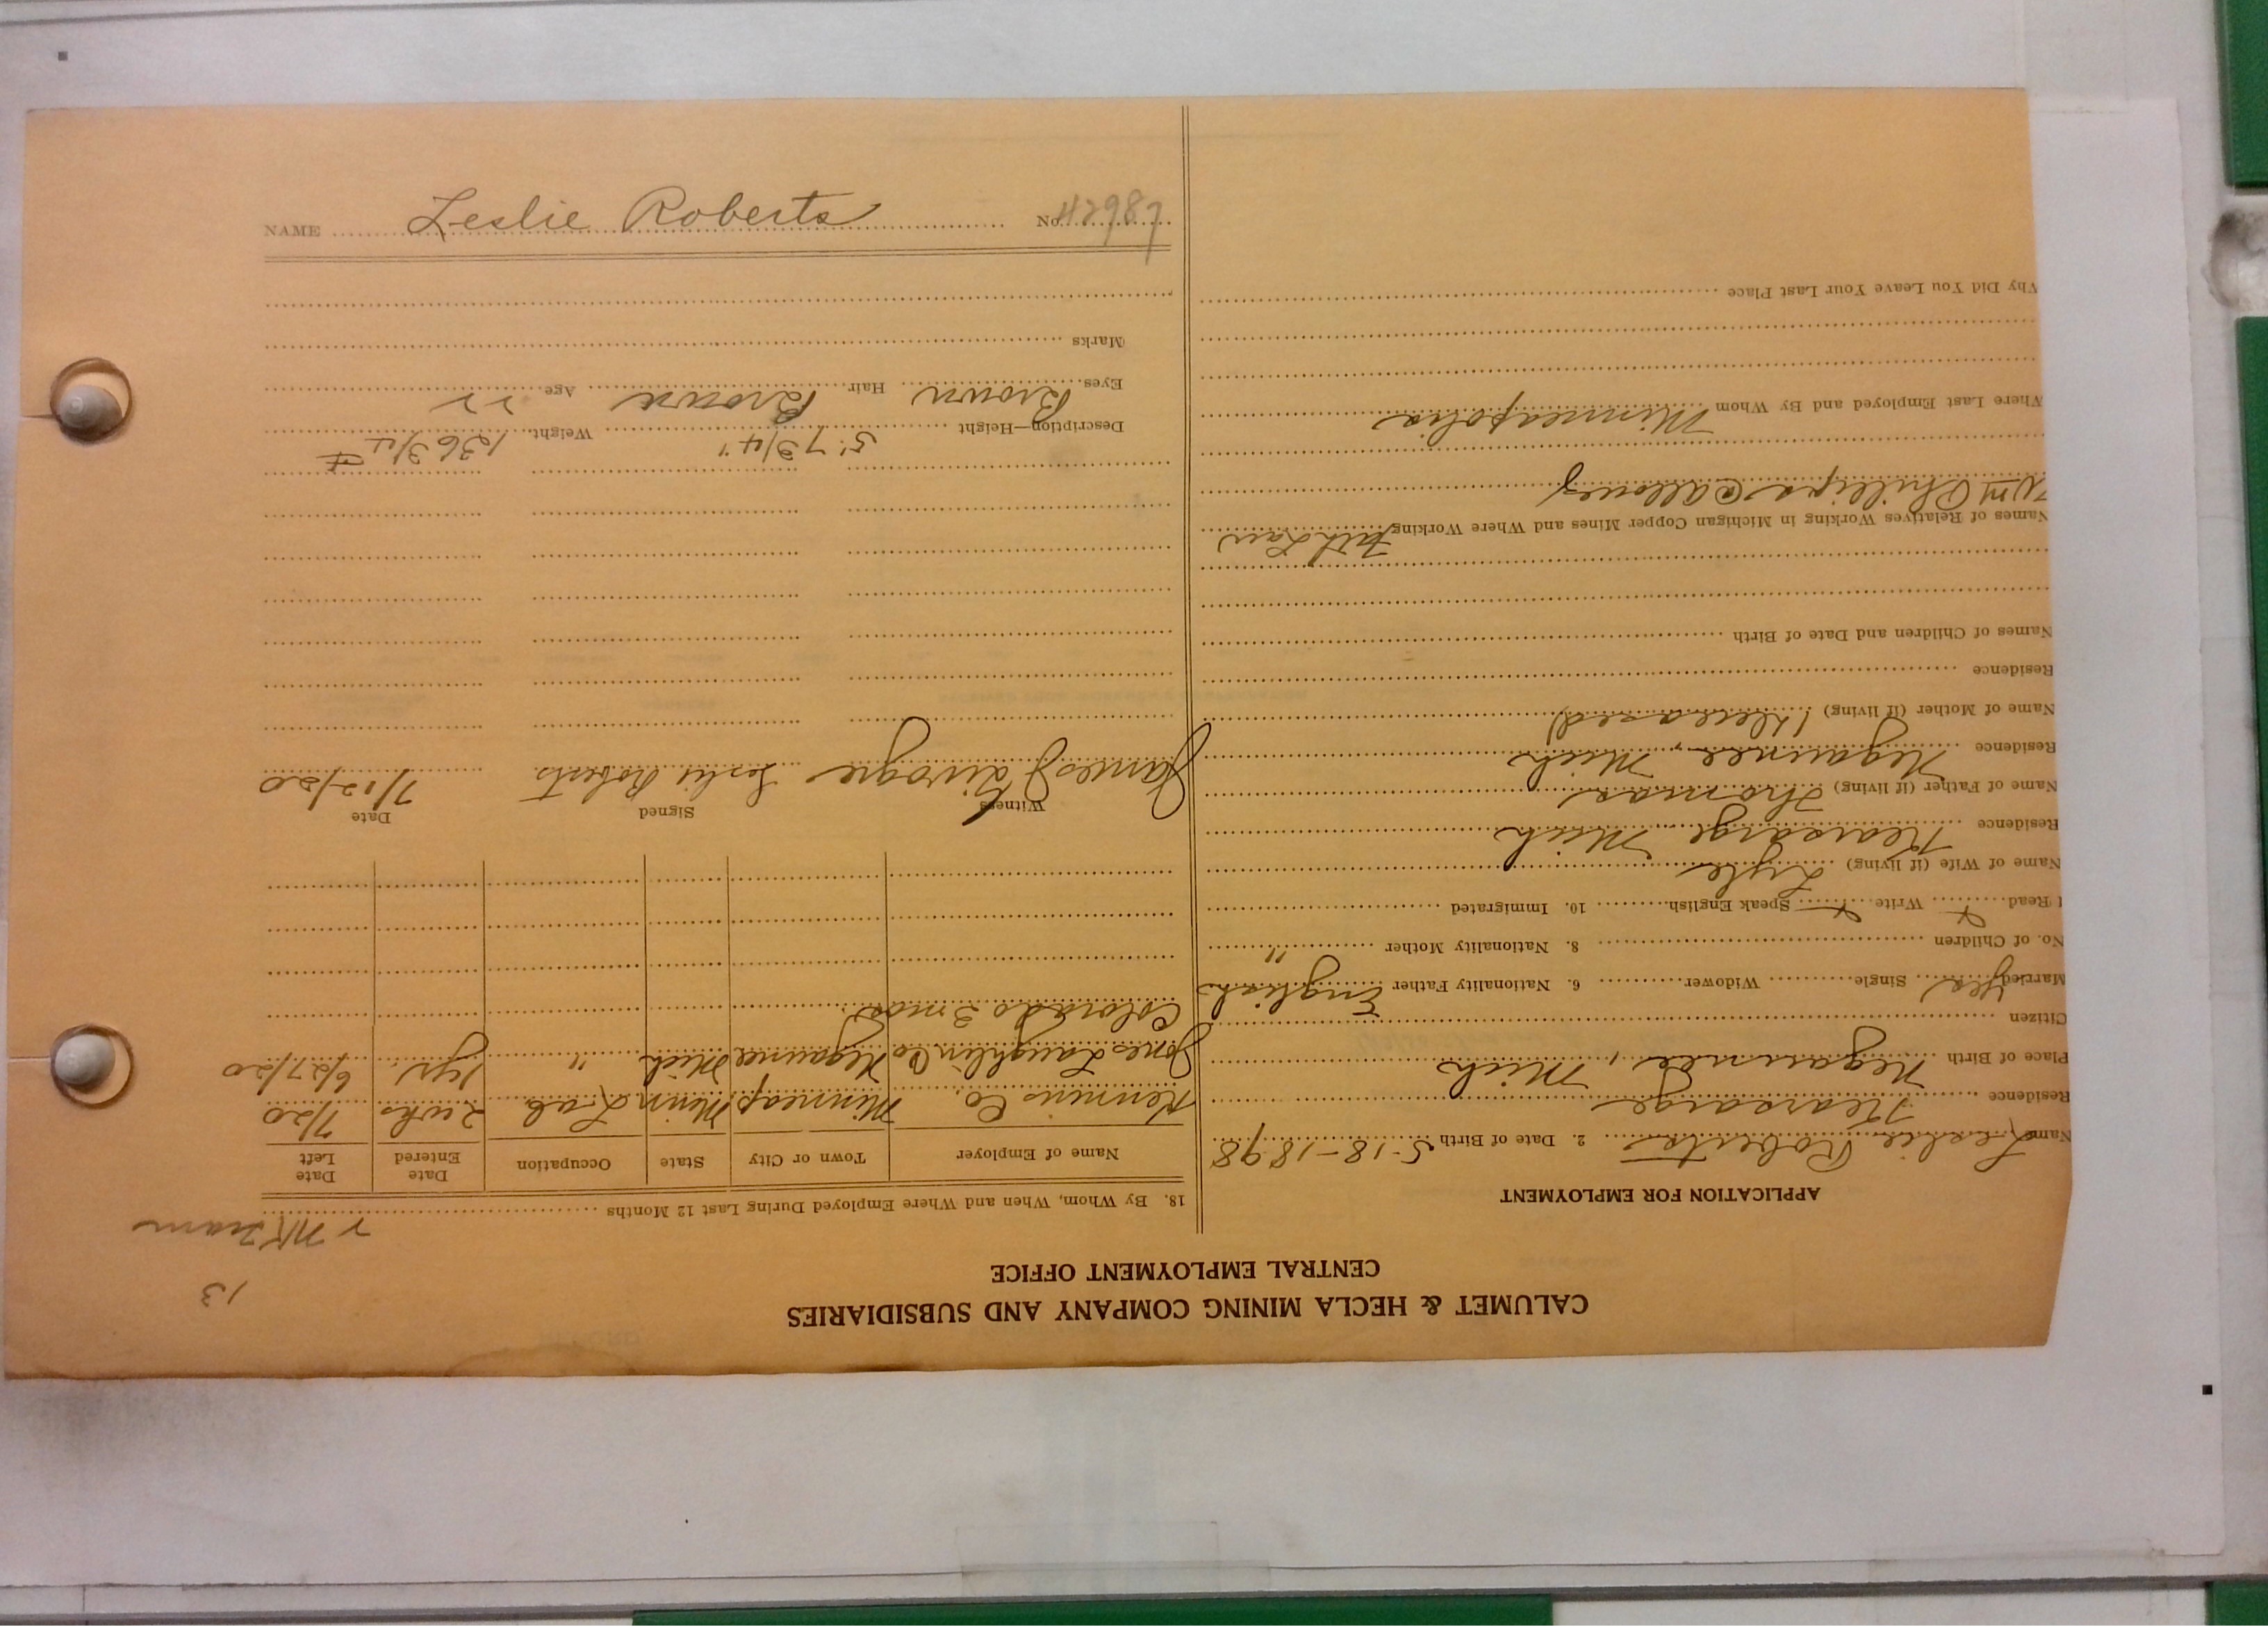 CALUMET & HECLA MINING COMPANY AND SUBSIDIARIES
CENTRAL EMPLOYMENT OFFICE
13
APPLICATION FOR EMPLOYMENT
Name Leslie Roberts 2. Date of Birth 5-18-1898
Residence Kearsarge
Place of Birth Negaunee, Mich
Citizen
Married yes Single Widower 6. Nationality Father English
No. of Children 8. Nationality Mother "
Read Write Speak English 10. Immigrated
Name of Wife (if living) Lyle
Residence Kearsarge, Mich
Name of Father (if living) Thomas
Residence Negaunee, Mich
Name of Mother (if living) (deceased)
Residence
Names of Children and Date of Birth
Names of Relatives Working in Michigan Copper Mines and Where Working Fath Law
Wm Phillips @ Allouez
Where Last Employed and By Whom Minneapolis
Why Did You Leave Your Last Place
18. By Whom, When and Where Employed During Last 12 Months
Name of Employer Town or City State Occupation Date Entered Date Left
Co. Minneap Minn Lab 2 wks 7/20
Jones Laughlin Co Negaunee Mich " 1 yr. 6/27/20
Colorado 3 mos
Witness Signed Date
James Leslie Roberts 7/12/20
Description—Height 5' 7 3/4" Weight 136 3/4 #
Eyes Brown Hair Brown Age 22
Marks
NAME Leslie Roberts No. 42987